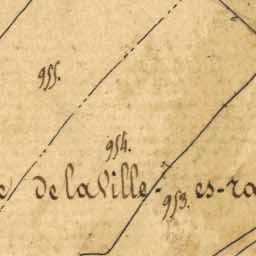 955.
954.
de la Ville-es-ra
953.